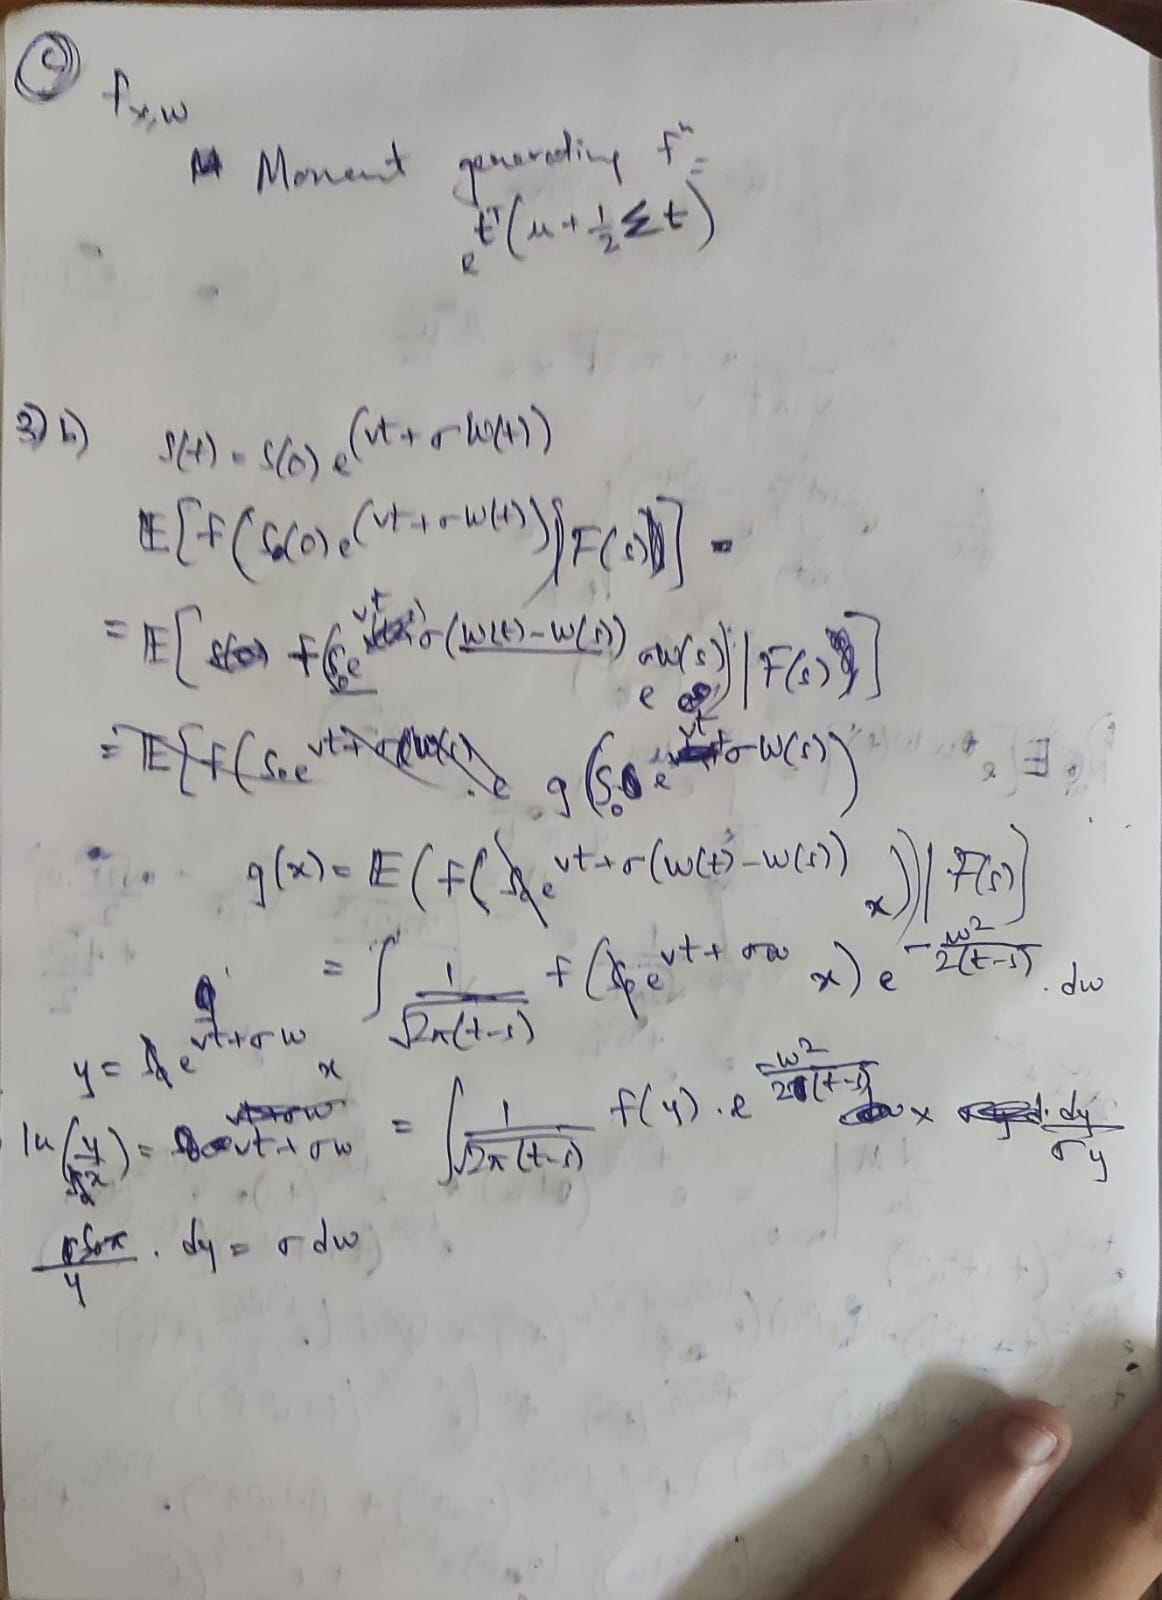 5
f_{x,w}
Moment generating fⁿ =
e^{tᵀ(μ + ½Σt)}
3) b) S(t) = S(0) e^{(νt + σW(t))}
𝔼[f(S(0) e^{(νt + σW(t))}) | F(s)] =
= 𝔼[f(S₀e^{νt + σ(W(t) - W(s))} e^{σW(s)}) | F(s)]
= g(S₀ e^{σW(s)})
g(x) = 𝔼(f(e^{νt + σ(W(t) - W(s))} x) | F(s)]
= ∫ 1/√(2π(t-s)) f(e^{νt + σw} x) e^{-w²/2(t-s)} . dw
y = e^{νt + σw} x
ln(y/x) = νt + σw = ∫ 1/√(2π(t-s)) f(y) . e^{-w²/2(t-s)} × dy/σy
/y . dy = σ dw